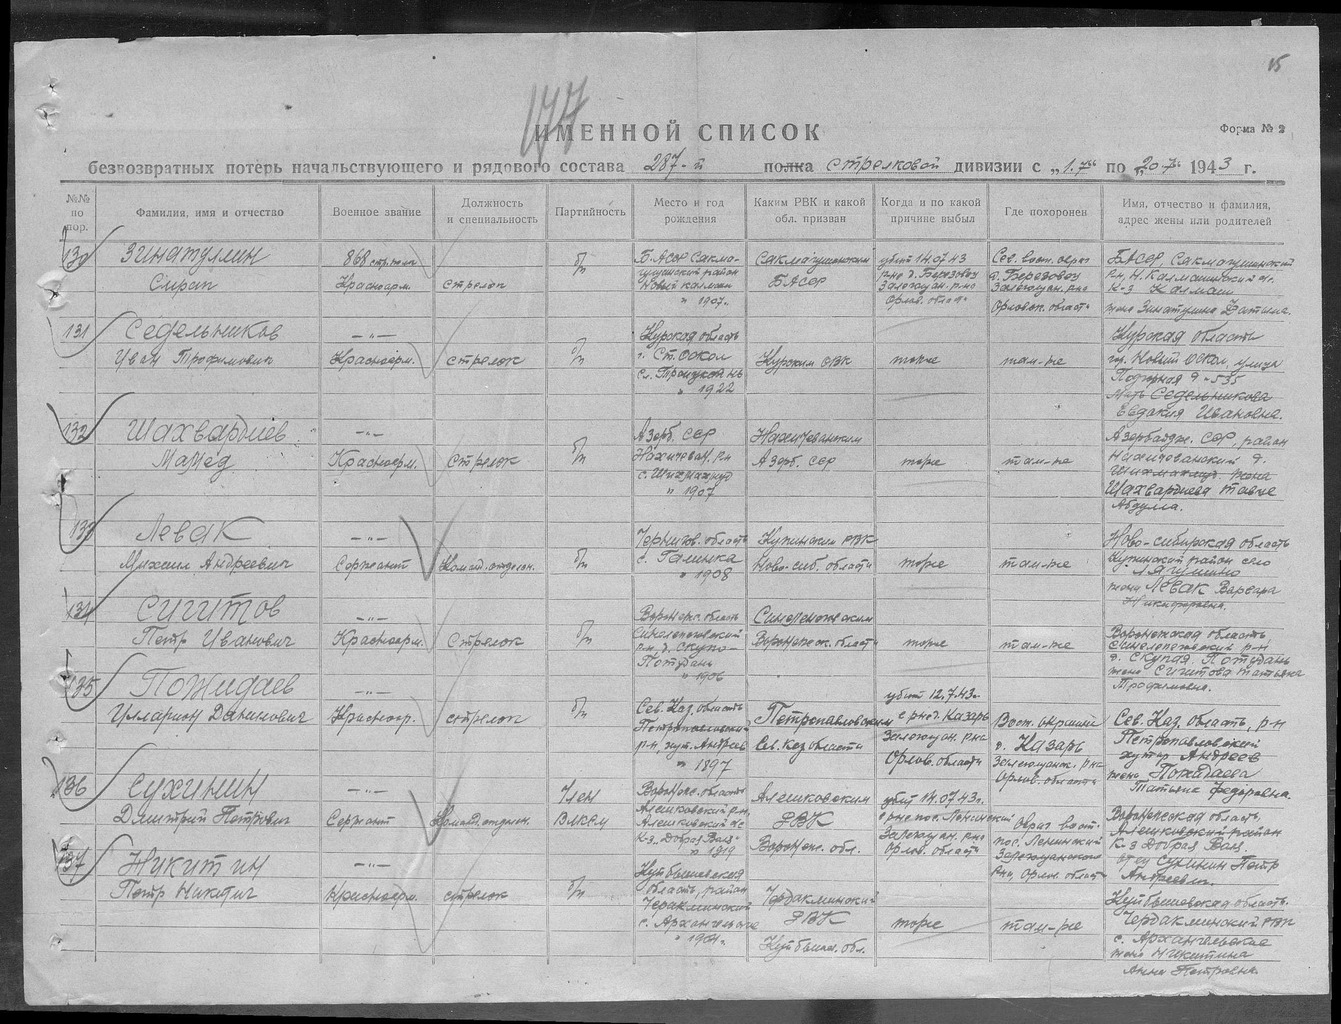 15
177
ИМЕННОЙ СПИСОК
Форма № 2
безвозвратных потерь начальствующего и рядового состава 287-й полка стрелковой дивизии с „1.7" по „20.7" 1943 г.
№№ по пор.
Фамилия, имя и отчество
Военное звание
Должность и специальность
Партийность
Место и год рождения
Каким РВК и какой обл. призван
Когда и по какой причине выбыл
Где похоронен
Имя, отчество и фамилия, адрес жены или родителей
130 Зинатуллин 868 стр. полк б/п Б. АССР Сакма- Сакмагушинским убит 14.07.43 Сев. вост. окр. БАССР Сакмагушинский
Сирап Красноарм. стрелок гушский район БАССР р-не д. Березовец д. Березовец р-н Н. Калмашский с/с
Новый Калмаш Залегощан. р-на Залегощан. р-на К-з Калмаш
" 1907 г. Орлов. область Орловск. область жена Зинатулина Фатима.
131 Седельников —"— Курская область Курская область
Иван Трофимович Красноарм. стрелок б/п г. Ст. Оскол Курским ОВК тоже там-же гор. Новый Оскол, улица
сл. Троицкая Подгорная д-535
" 1922 Мать Седельникова
Евдокия Ивановна
132 Шахвардиев —"— Азерб. ССР Нахичеванским Азербайдж. ССР, район
Мамед Красноарм. Стрелок б/п Нахичеван. р-н Азерб. ССР тоже там-же Нахичеванский д.
с. Шихмахмуд Шихмахмуд жена
" 1907 Шахвардиева
Абдулла.
133 Левак —"— Чернигов. область Купинским РВК Ново-сибирская область
Михаил Андреевич Сержант Команд. отделен. б/п с. Галинка Ново-сиб. области тоже там-же Купинский район село
" 1908 Лягушино
жена Левак Варвара
Никифоровна.
134 Сигитов —"— Воронеж. область Синелепяговским Воронежская область
Петр Иванович Красноарм. Стрелок б/п Синелепяговский Воронежск. области тоже там-же Синелепяговский р-н
р-н, д. Скупо- д. Скупая Потудань
Потудань жена Сигитова Татьяна
" 1906 Трофимовна.
135 Пожидаев —"— убит 12.7.43 г.
Илларион Данилович Красноар. стрелок б/п Сев. Каз. область Петропавловским в р-не д. Казарь Вост. окраина Сев. Каз. область, р-н
Петропавловский Сев. Каз области Залегощан. р-на д. Казарь Петропавловский
р-н, хут. Андреев Орлов. области Залегощанск. р-на хутор Андреев
" 1897 Орлов. область жена Пожидаева
Татьяна Федоровна.
136 Сухинин —"— Член Воронежс. область Алешковским убит 14.07.43 г. Воронежская область.
Дмитрий Петрович Сержант Команд. отделен. ВЛКСМ Алешковский р-н, РВК в р-не пос. Ленинский овраг вост. Алешковский район
Алешковский с/с Воронежс. обл. Залегощан. р-на пос. Ленинский К-з Добрая Воля.
К-з „Добрая Воля" Орлов. область Залегощанского отец Сухинин Петр
" 1919 р-на, Орлов. област. Андреевич.
137 Никитин —"— Куйбышевская
Петр Никитич Красноарм. стрелок б/п область, район Чердаклинский Куйбышевская область.
Чердаклинский РВК тоже там-же Чердаклинский РВК
с. Архангельское Куйбышев. обл. с. Архангельское
" 1904 г. жена Никитина
Анна Петровна.